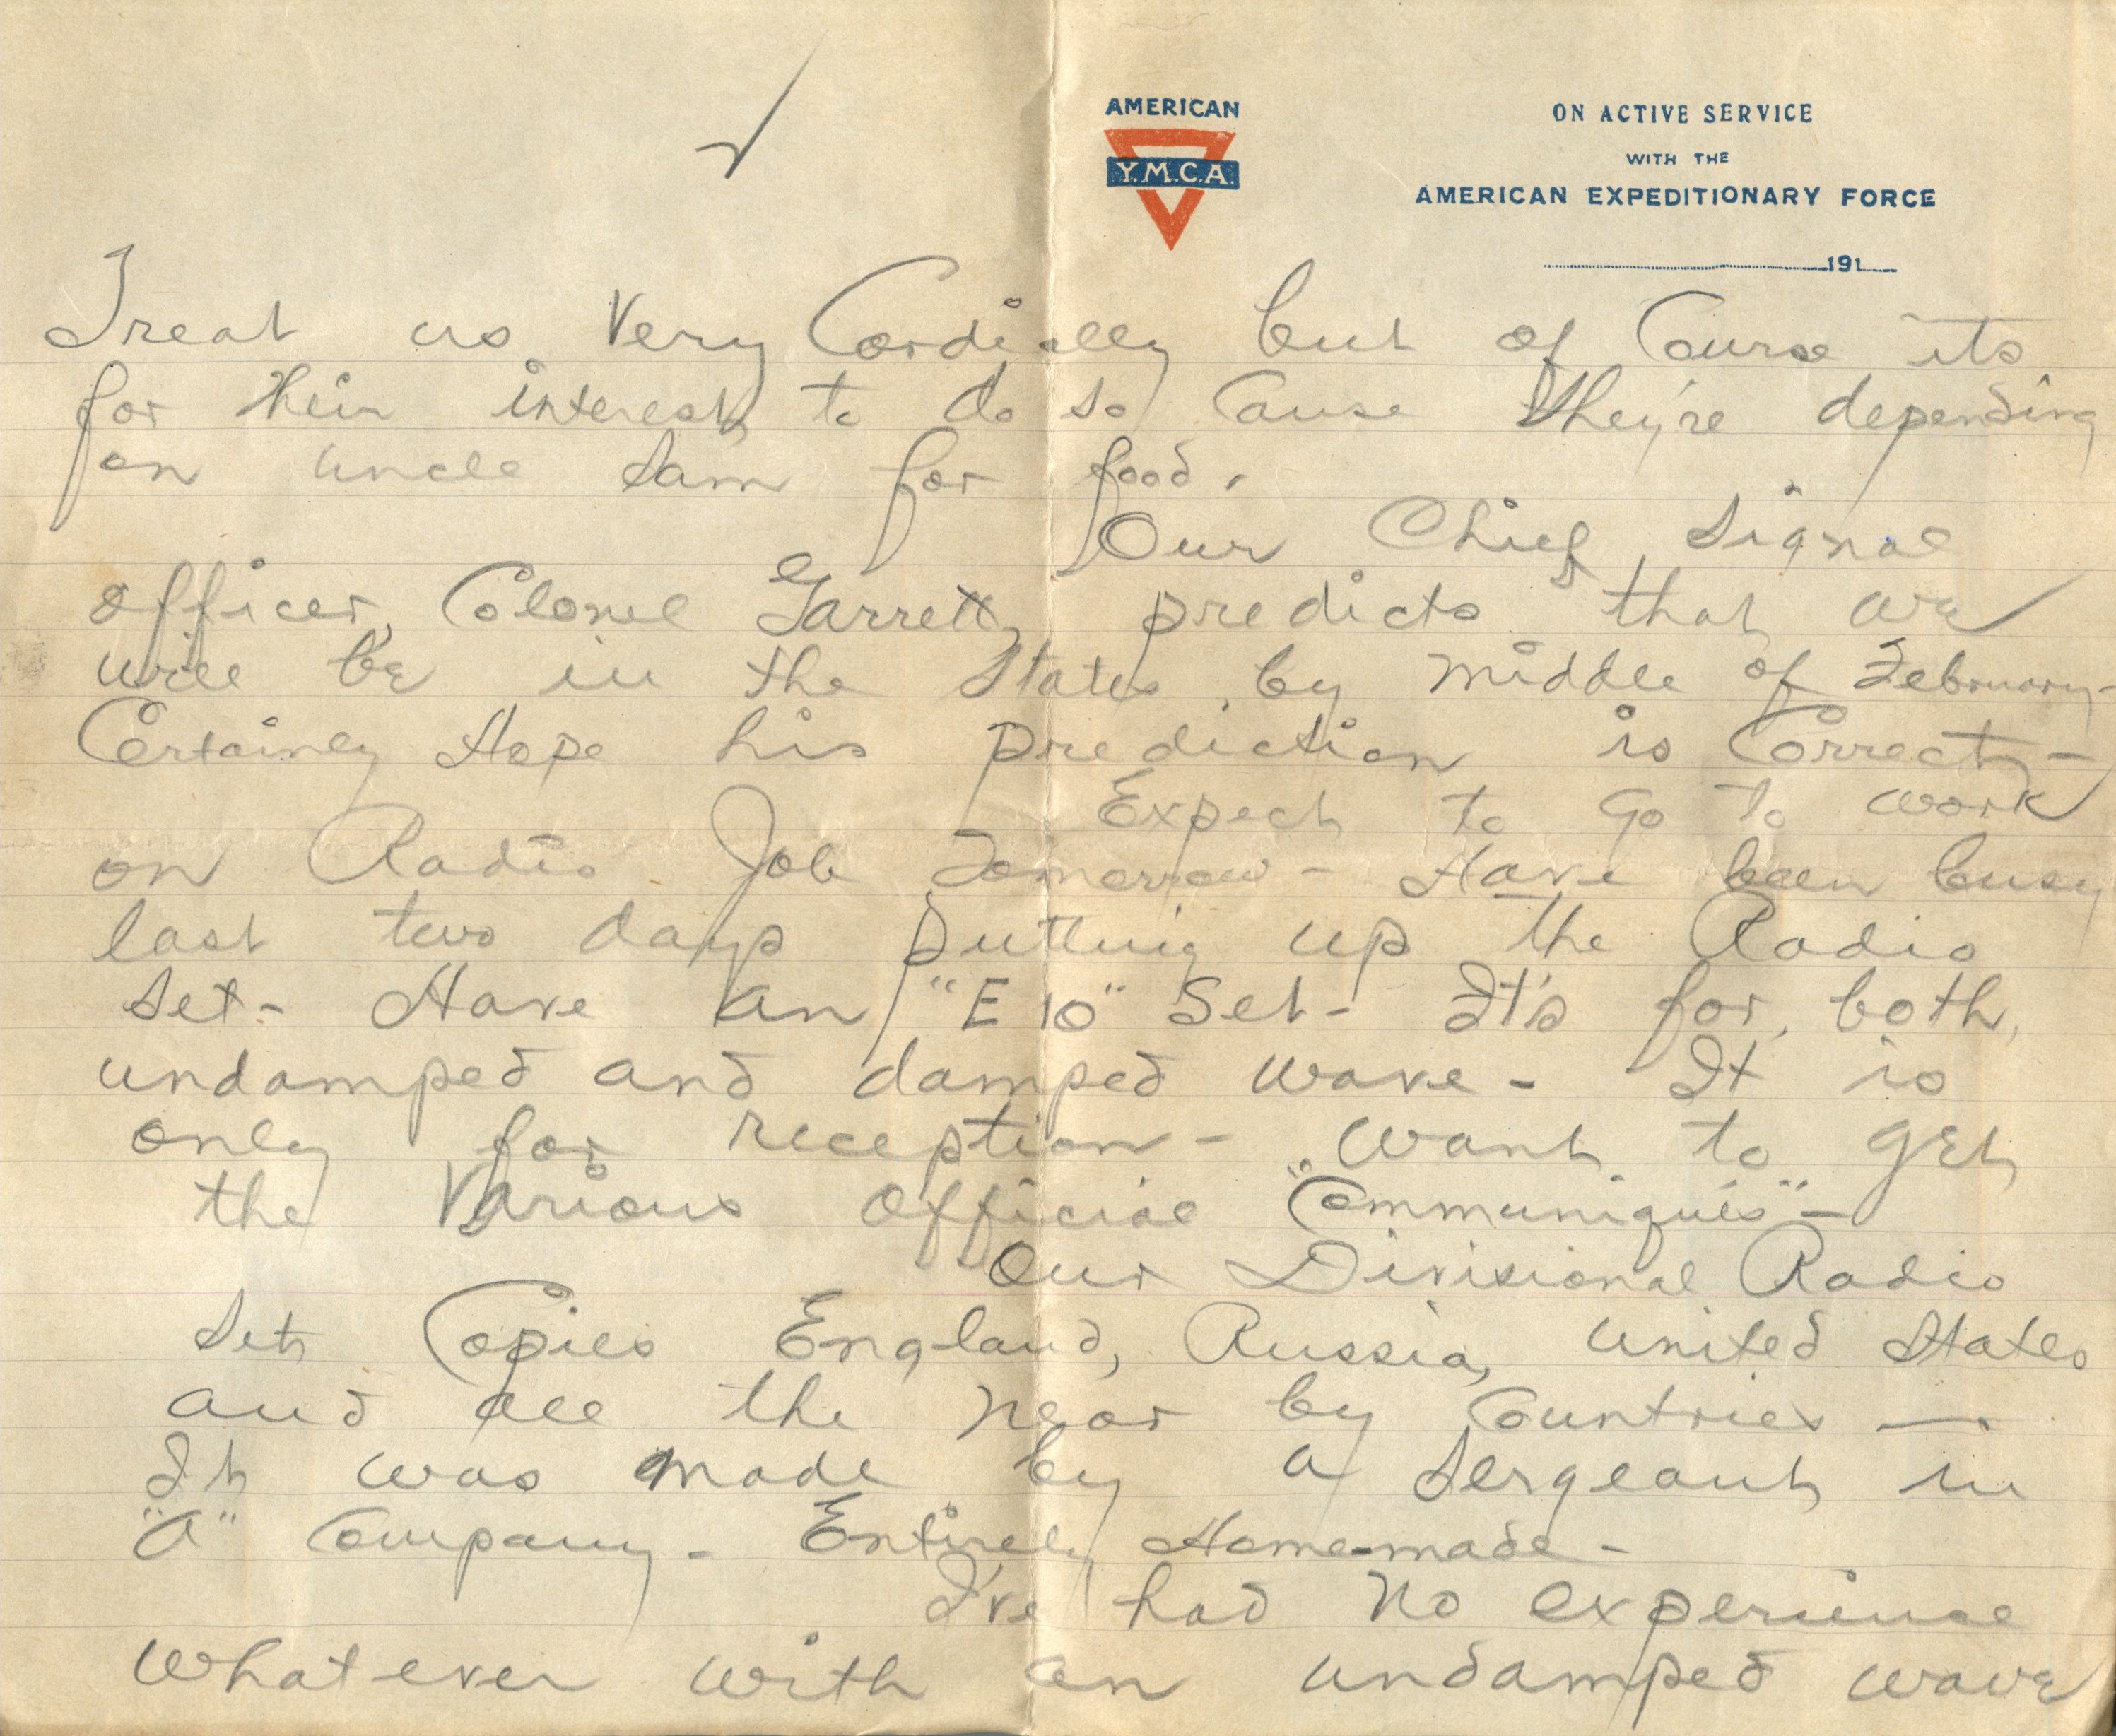 AMERICAN
Y.M.C.A.
ON ACTIVE SERVICE
WITH THE
AMERICAN EXPEDITIONARY FORCE
191
Treat us very Cordially but of Course its
for their interest to do so Cause they're depending
on uncle Sam for food.
Our Chief Signal
officer, Colonel Garrett, predicts that we
will be in the States by middle of February-
Certainly Hope his prediction is Correct-
Expect to Go to work
on Radio Job Tomorrow - Have been busy
last two days putting up the Radio
Set- Have an "E 10" Set- It's for both,
undamped and damped wave- It is
only for reception- want to get
the Various Official "Communiqués"-
Our Divisional Radio
Set Copies England, Russia, United States
and all the near by Countries —
It was made by a Sergeant in
"A" Company- Entirely Home-made-
I've had no experience
Whatever with an undamped wave